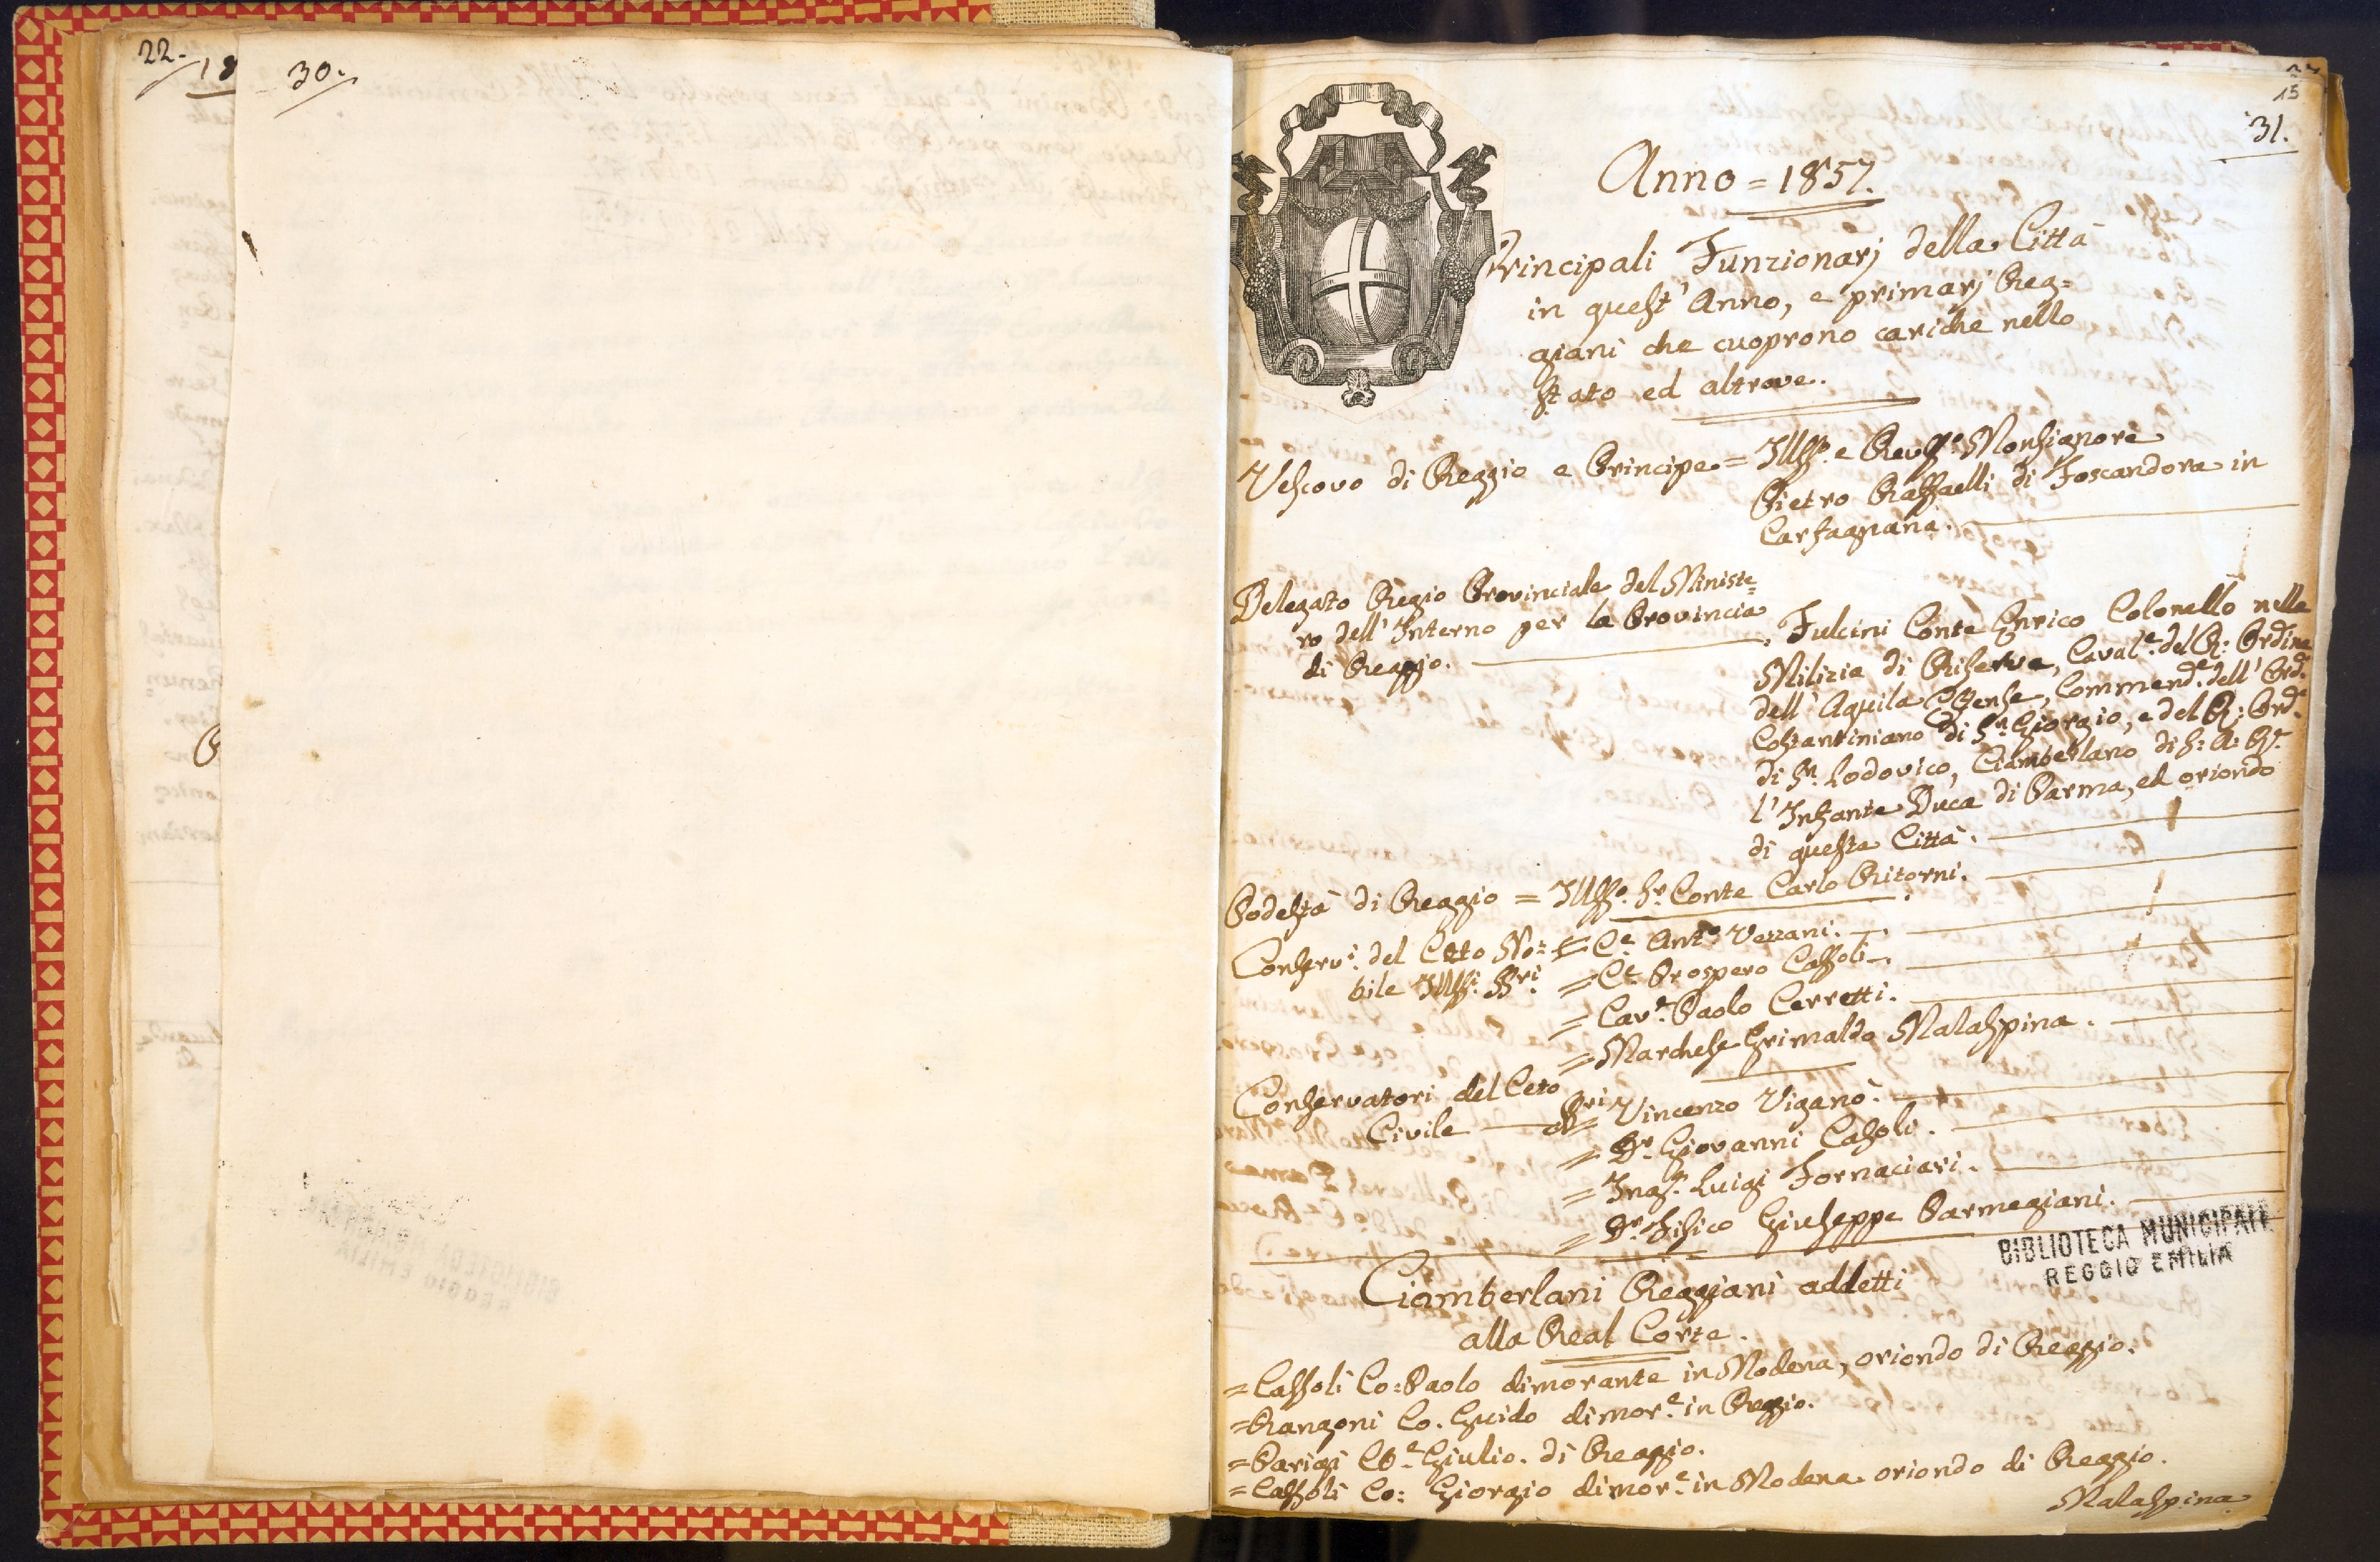 22.
18
30.
15
31.
Anno = 1857.
Principali Funzionarj della Città
in quest' Anno, e primarj Reg=
giani che cuoprono cariche nello
Stato ed altrove.
Vescovo di Reggio e Principe = Illmo. e Revmo. Monsignore
Pietro Raffaelli di Foscandora in
Garfagnana.
Delegato Regio Provinciale del Ministe=
ro dell' Interno per la Provincia
di Reggio.
Fulcini Conte Enrico Colonello nelle
Milizie di Riserva, Caval.e del R: Ordine
dell' Aquila Estense, Commend.e dell' Ord.e
Costantiniano di Sn. Giorgio, e del R: Ord.e
di Sn. Lodovico, Ciamberlano di S: A: R.
l' Infante Duca di Parma, ed oriondo
di questa Città.
Podestà di Reggio = Illmo. Sr. Conte Carlo Ritorni.
Conserv.i del Ceto No= = Ce. Anto. Vezzani.
bile Illmi. SSri. = Ce. Prospero Cassoli.
= Cav.e Paolo Cerretti.
= Marchese Grimaldo Malaspina.
Conservatori del Ceto
Civile SSri = Vincenzo Viganò.
= Dr. Giovanni Casoli.
= Ingr. Luigi Fornaciari.
= Dr. Fisico Giuseppe Parmegiani.
BIBLIOTECA MUNICIPALE
REGGIO EMILIA
Ciamberlani Reggiani addetti
alla Real Corte.
= Cassoli Co: Paolo dimorante in Modena, oriondo di Reggio.
= Rangoni Co. Guido dimor.e in Reggio.
= Parigi Giulio. di Reggio.
= Cassoli Co: Giorgio dimor.e in Modena oriondo di Reggio.
Malaspina